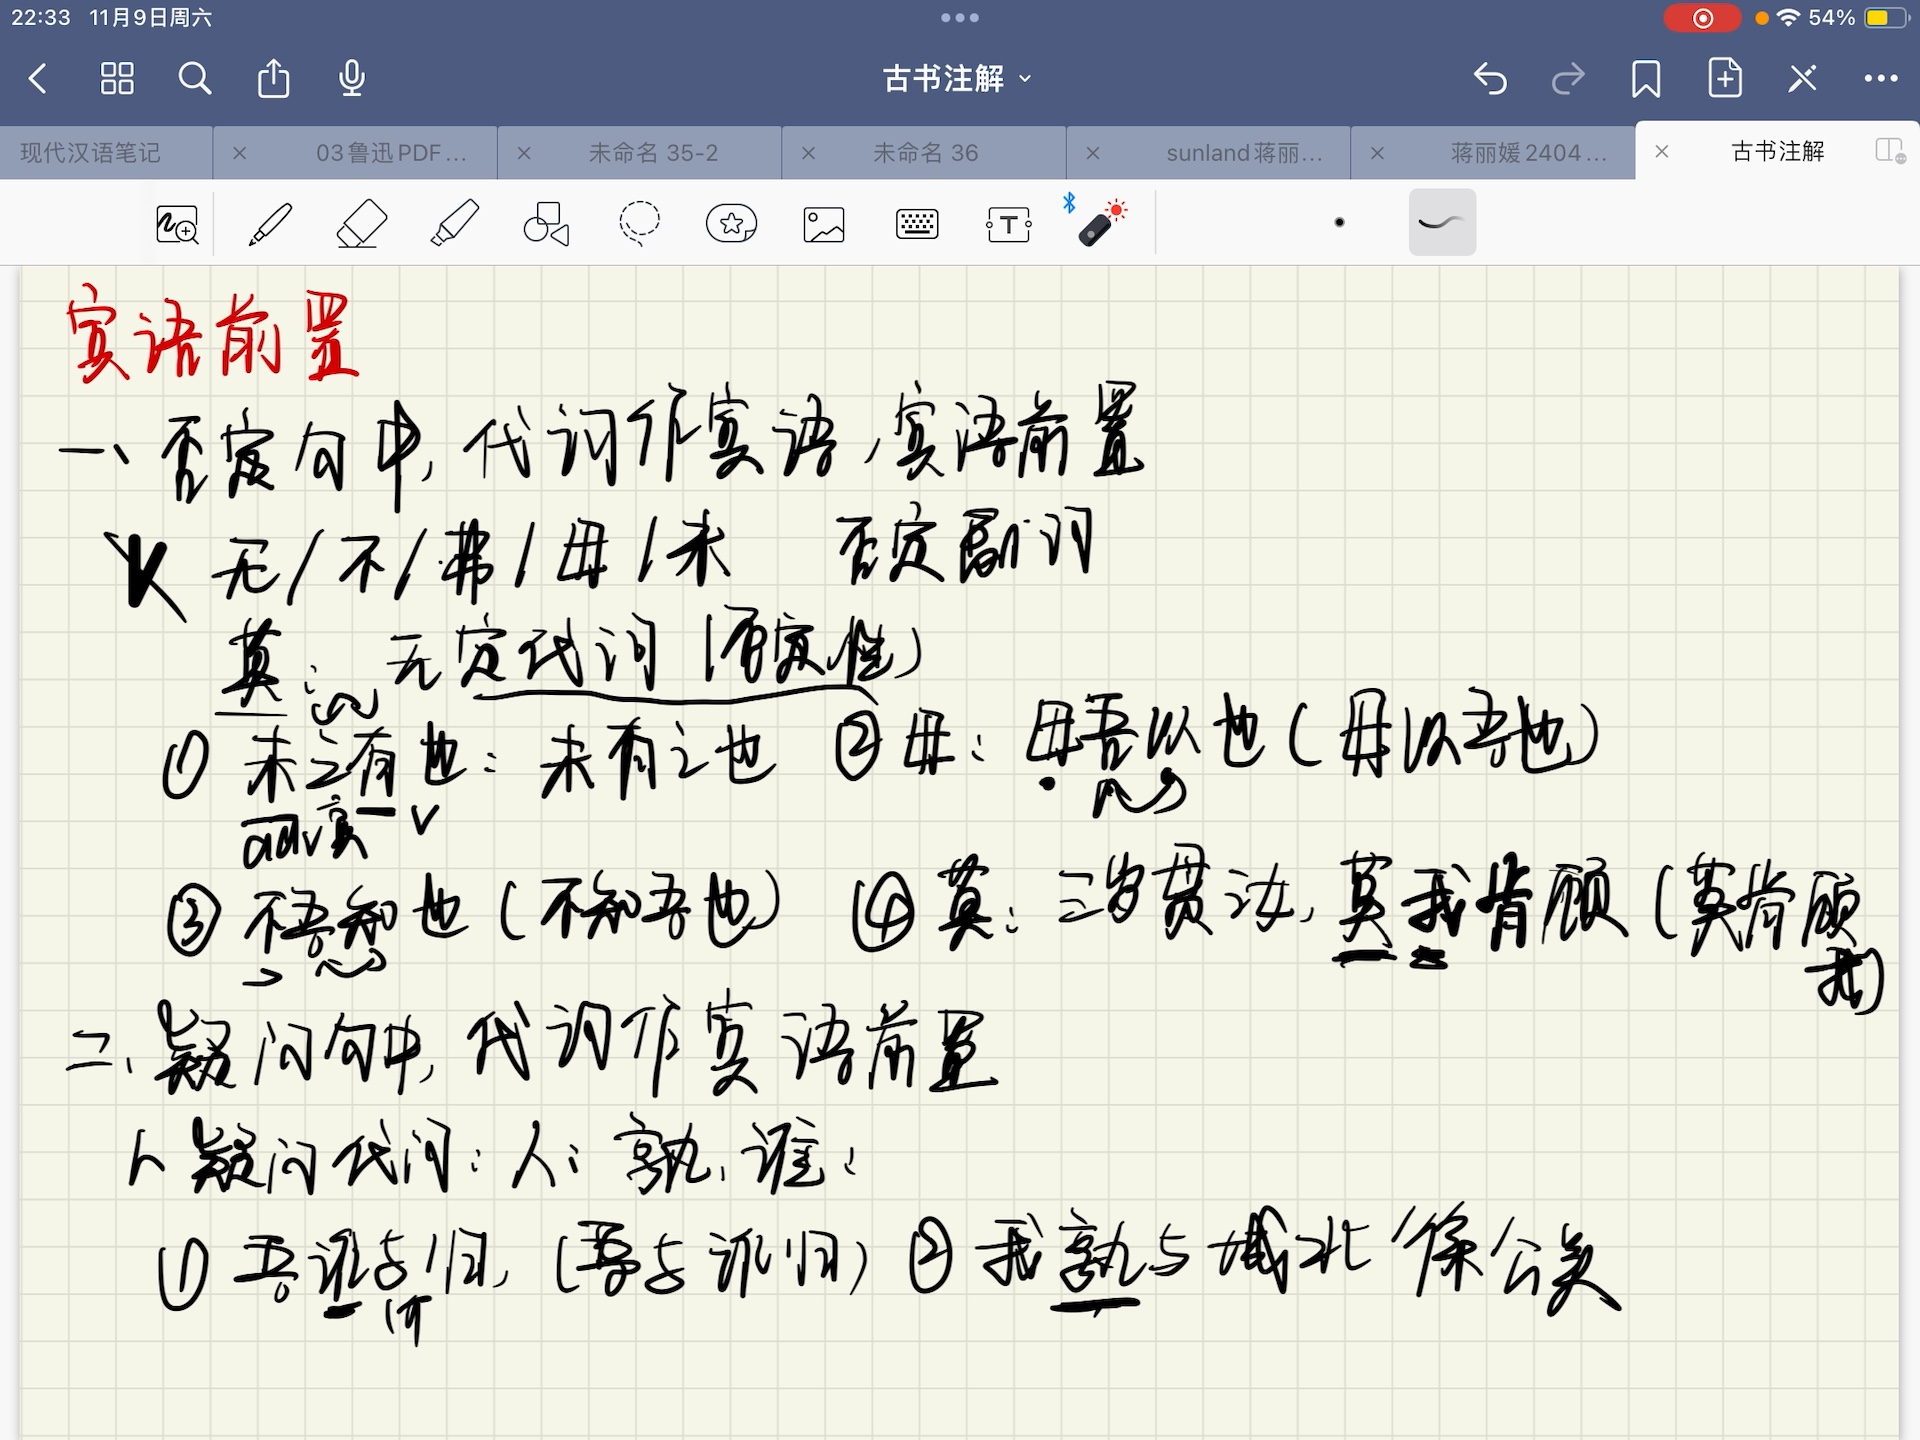 22:33 11月9日周六 54%
古书注解
现代汉语笔记 03鲁迅PDF... 未命名 35-2 未命名 36 sunland蒋丽... 蒋丽媛2404... 古书注解
宾语前置
一、否定句中,代词作宾语,宾语前置
无/不/弗/毋/未 否定副词
莫: 无定代词(否定性)
① 未之有也: 未有之也 ② 毋: 毋吾以也(毋以吾也)
adv 宾 v
③ 不吾知也(不知吾也) ④ 莫: 三岁贯汝, 莫我肯顾(莫肯顾我)
二、疑问句中,代词作宾语前置
1、疑问代词: 人: 孰、谁:
① 吾谁与归, (吾与谁归) ② 我孰与城北徐公美
介